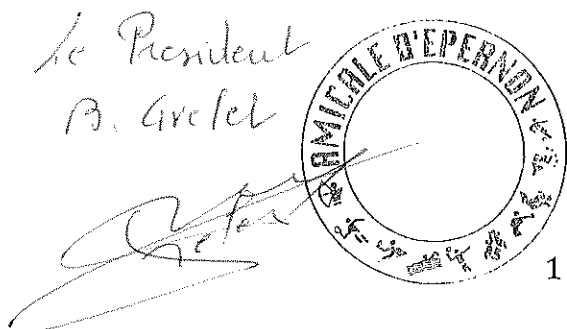 Le President
B. Grelet
AMICALE D'EPERNON
1